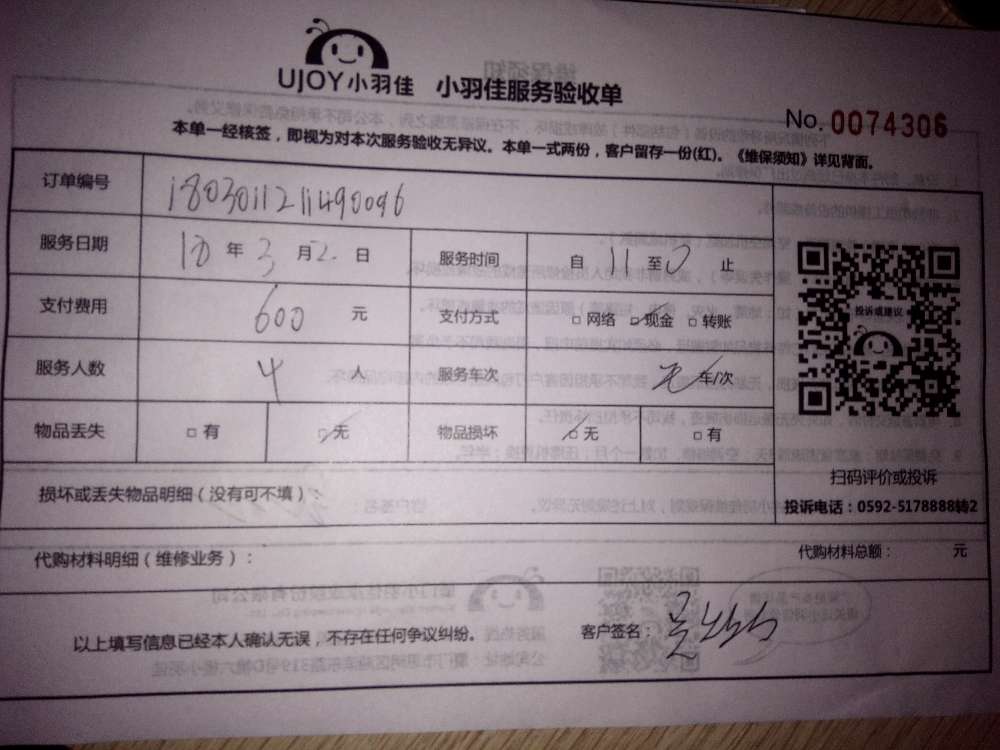 UJOY小羽佳 小羽佳服务验收单
No. 0074306
本单一经核签，即视为对本次服务验收无异议。本单一式两份，客户留存一份(红)。《维保须知》详见背面。
订单编号 1803011211490096
服务日期 18 年 3 月 2 日 服务时间 自 11 至 止
支付费用 600 元 支付方式 □ 网络 □ 现金 □ 转账
服务人数 4 人 服务车次 无 车/次
物品丢失 □ 有 □ 无 物品损坏 □ 无 □ 有
投诉或建议
扫码评价或投诉
投诉电话：0592-5178888转2
损坏或丢失物品明细（没有可不填）：
代购材料明细（维修业务）：
代购材料总额： 元
以上填写信息已经本人确认无误，不存在任何争议纠纷。
客户签名：